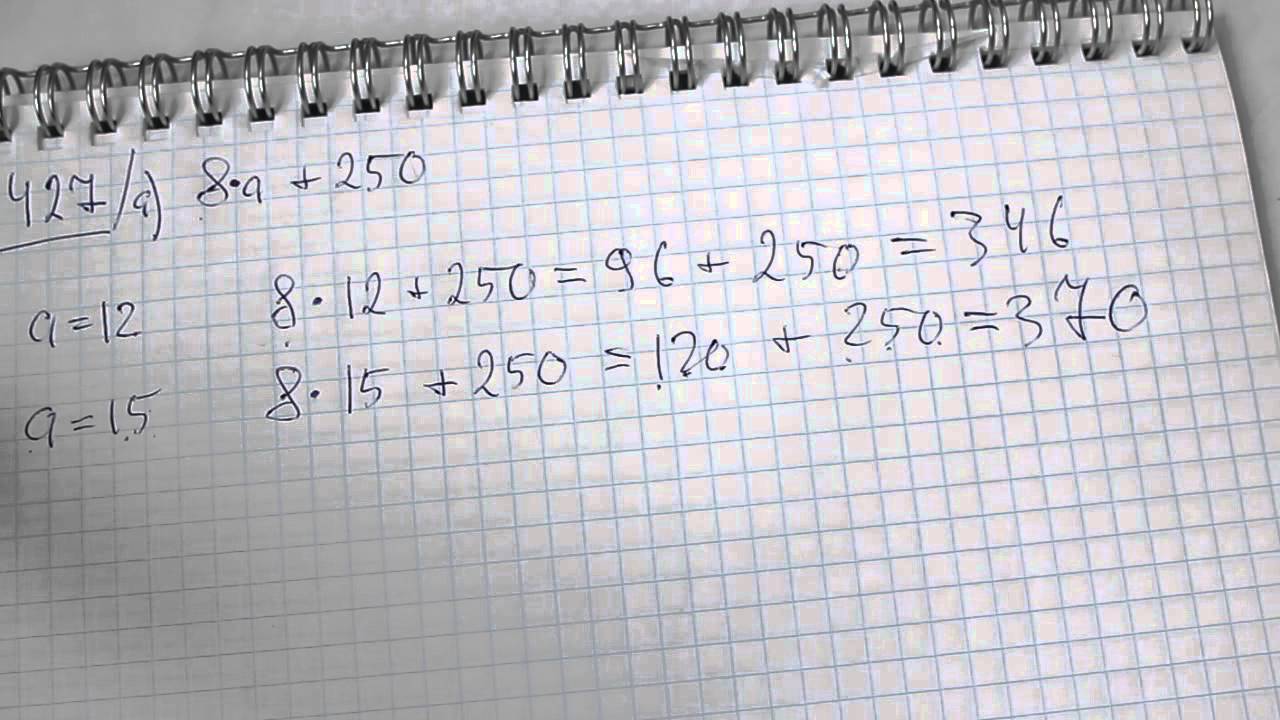 427/a) 8·a + 250
a=12 8·12+250=96+250=346
a=15 8·15+250=120+250=370